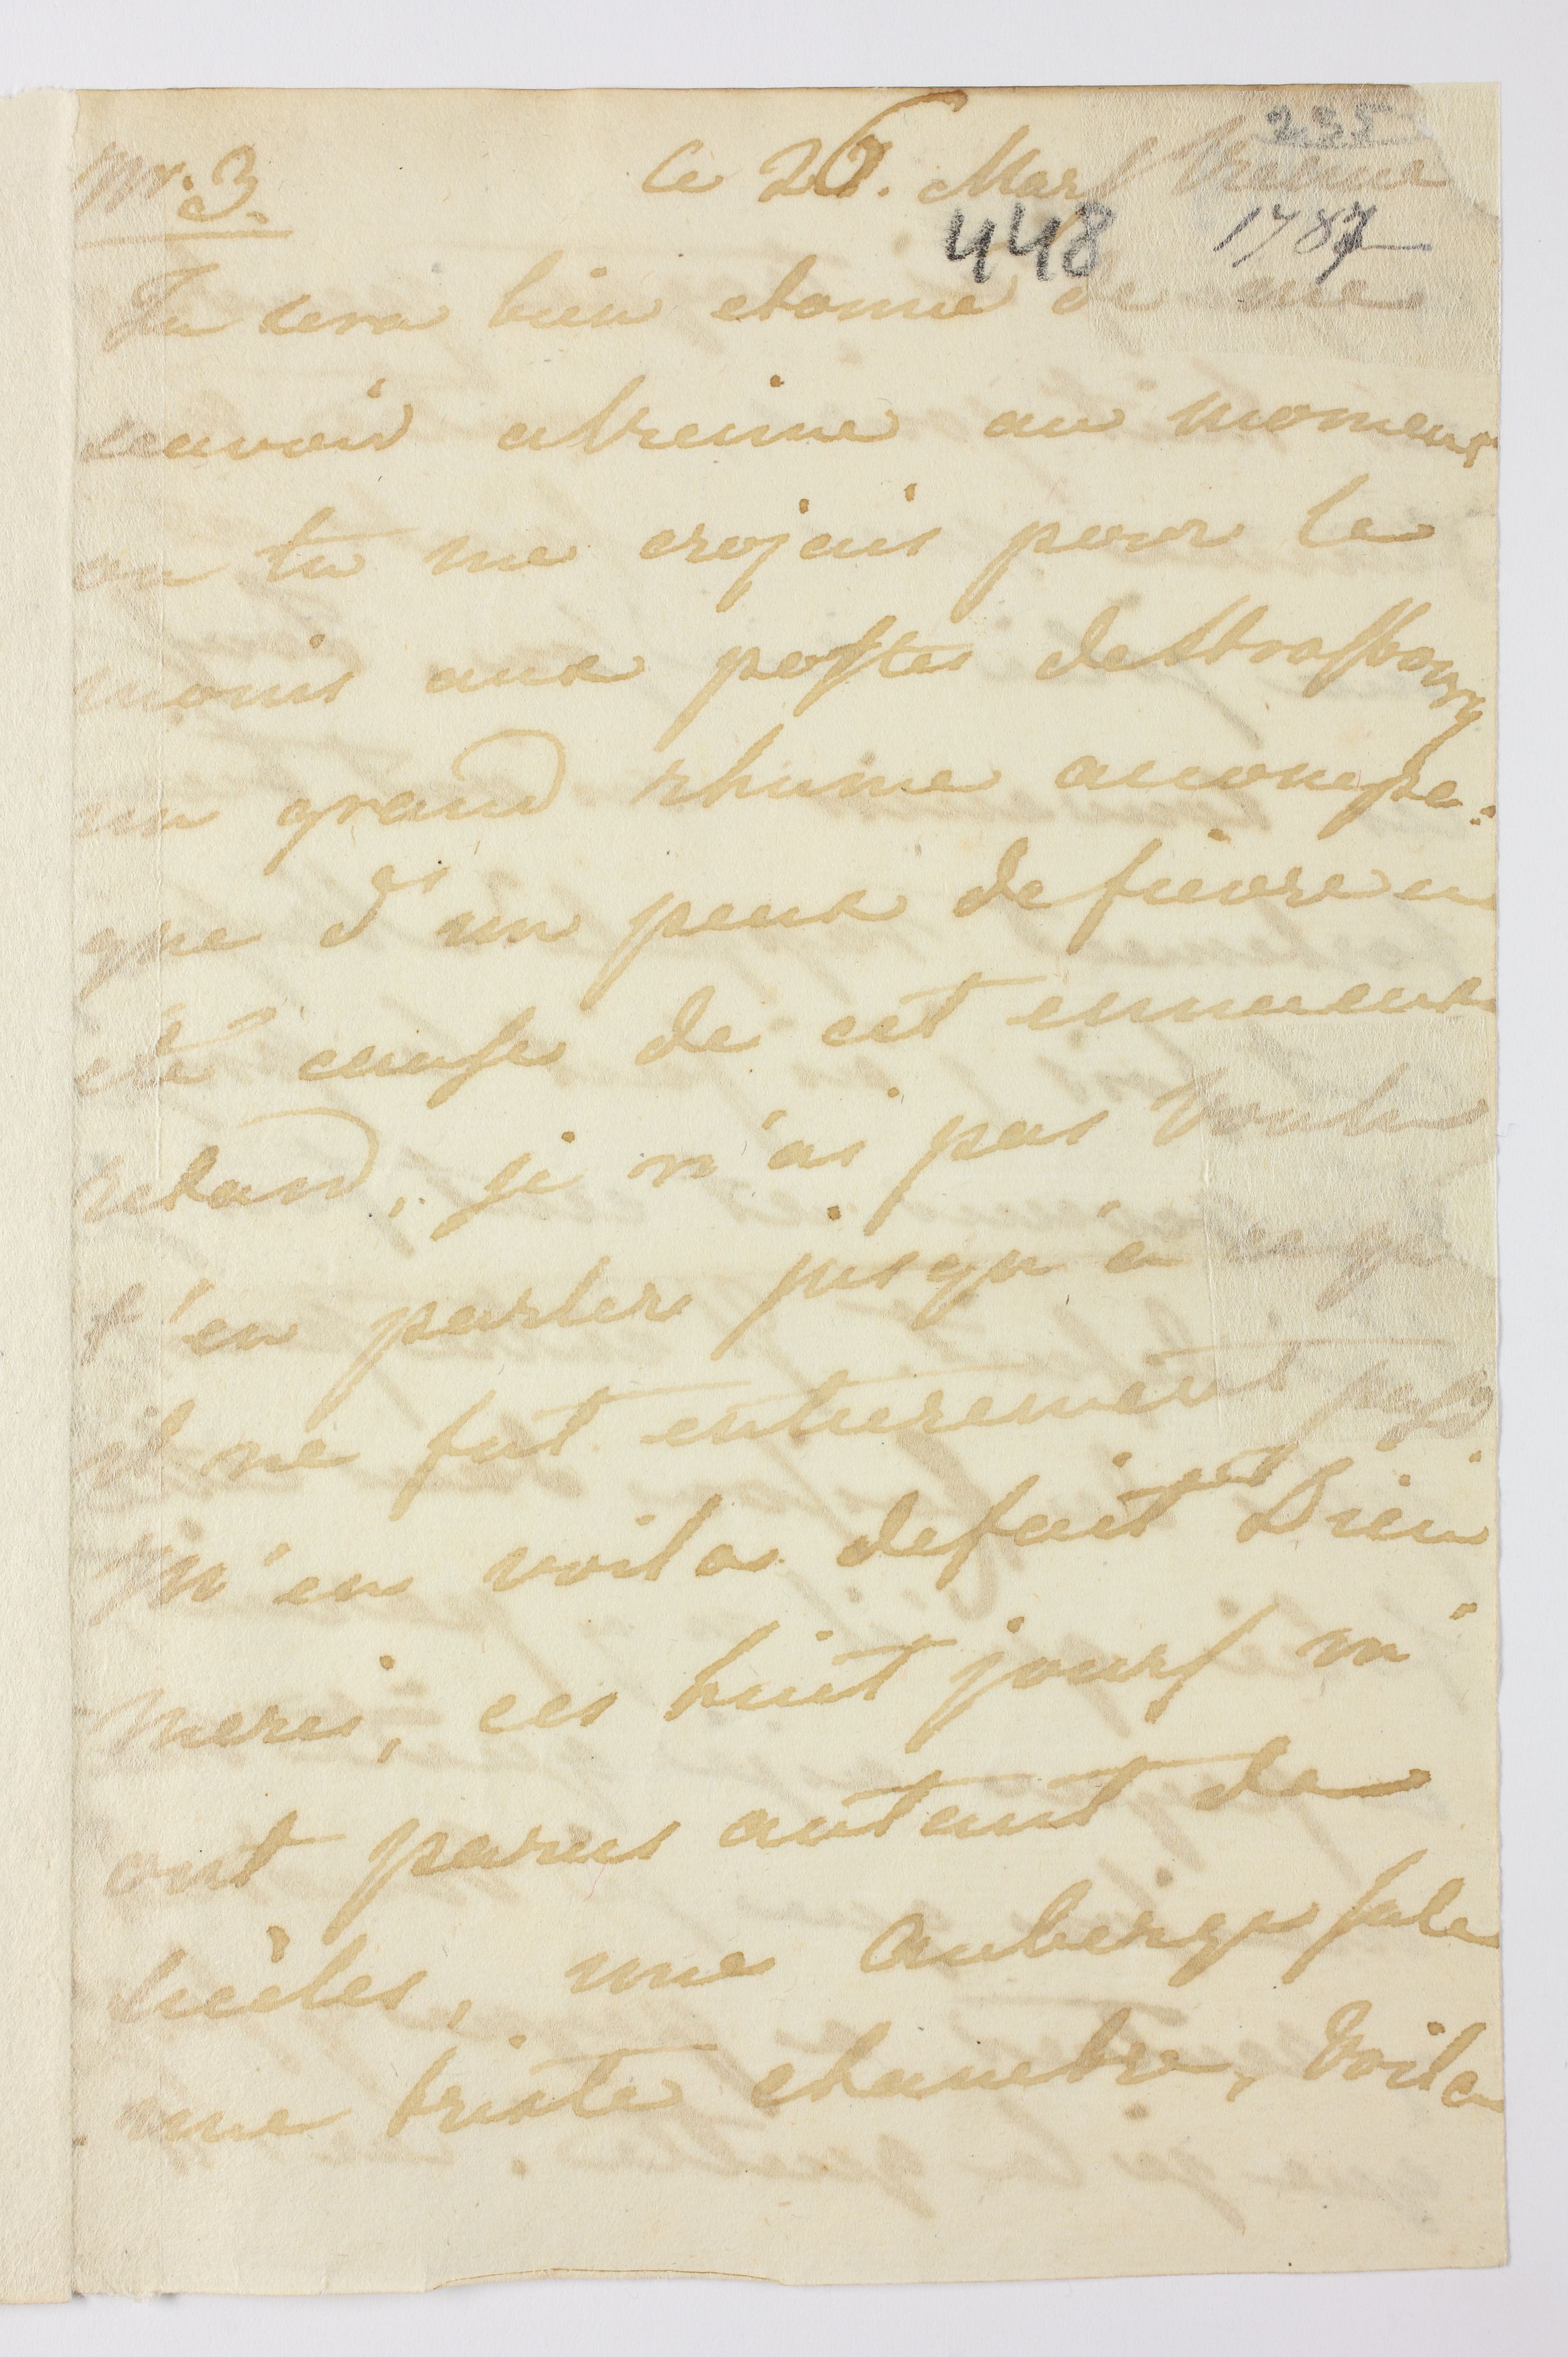 235
Nr. 3. Ce 26. Mars Vienne
448 1787
Tu sera bien etonné de me
scavoir a Vienne au moment
ou tu me crojais pour le
moins aux postes de Strasbourg
un grand rhume accompa:
gne d'un peux de fievre a
eté cause de cet ennueux
retard, je n'ai pas voulu
t'en parler jusqu'a ce qu
il ne fut entierement passé
m'en voila defait Dieu
merci, ces huit jours m'
ont parus autant de
siècles, une auberge sale
une triste chambre, voila